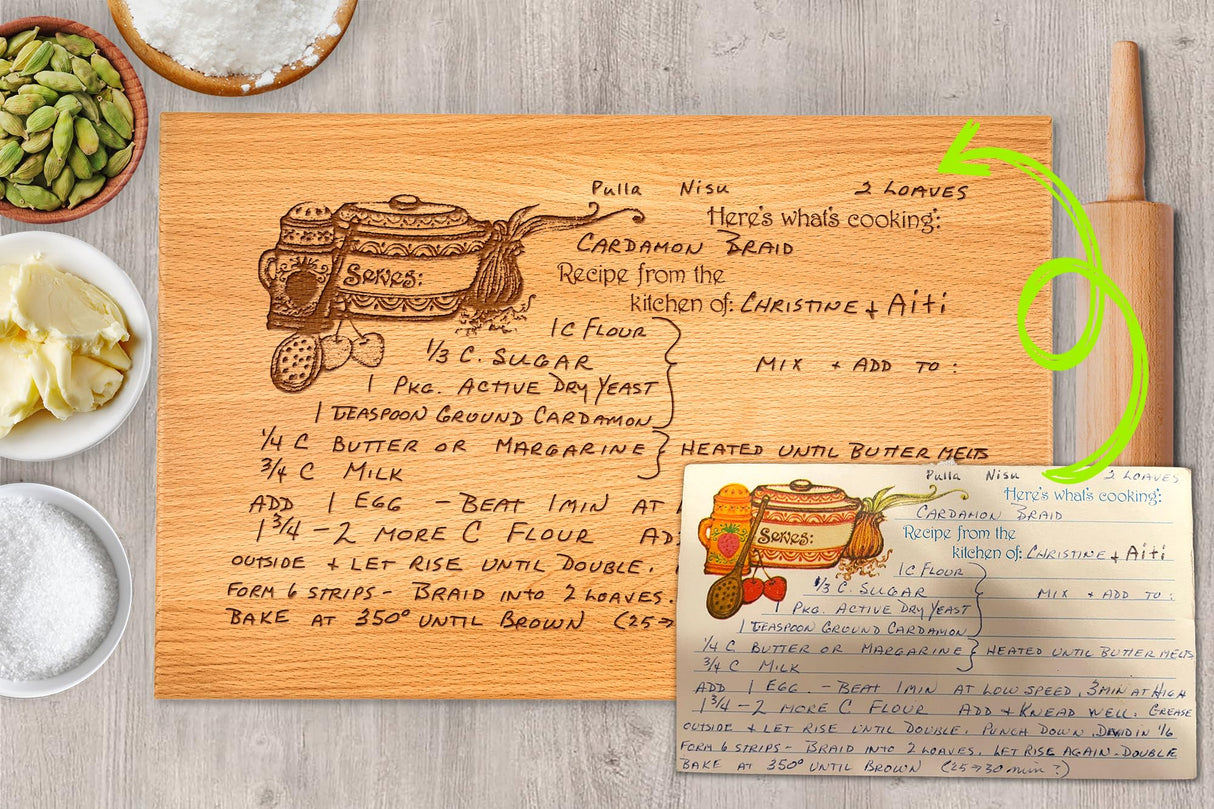 Pulla Nisu 2 LOAVES
Here's what's cooking:
CARDAMON BRAID
Serves:
Recipe from the
kitchen of: CHRISTINE + Aiti
1C FLOUR
1/3 C. SUGAR
MIX + ADD TO :
1 PKG. ACTIVE DRY YEAST
1 TEASPOON GROUND CARDAMON
1/4 C BUTTER OR MARGARINE HEATED UNTIL BUTTER MELTS
3/4 C MILK
ADD 1 EGG - BEAT 1MIN AT
1 3/4 - 2 MORE C FLOUR AD
OUTSIDE + LET RISE UNTIL DOUBLE.
FORM 6 STRIPS - BRAID INTO 2 LOAVES.
BAKE AT 350° UNTIL BROWN (25→
Pulla Nisu 2 LOAVES
Here's what's cooking:
CARDAMON BRAID
Serves:
Recipe from the
kitchen of: CHRISTINE + Aiti
1C FLOUR
1/3 C. SUGAR MIX + ADD TO :
1 PKG. ACTIVE DRY YEAST
1 TEASPOON GROUND CARDAMON
1/4 C BUTTER OR MARGARINE HEATED UNTIL BUTTER MELTS
3/4 C MILK
ADD 1 EGG. - BEAT 1MIN AT LOW SPEED, 3MIN AT HIGH
1 3/4 - 2 MORE C FLOUR ADD + KNEAD WELL. GREASE
OUTSIDE + LET RISE UNTIL DOUBLE. PUNCH DOWN. IN 1/6
FORM 6 STRIPS - BRAID INTO 2 LOAVES. LET RISE AGAIN - DOUBLE
BAKE AT 350° UNTIL BROWN (25→30 min ?)